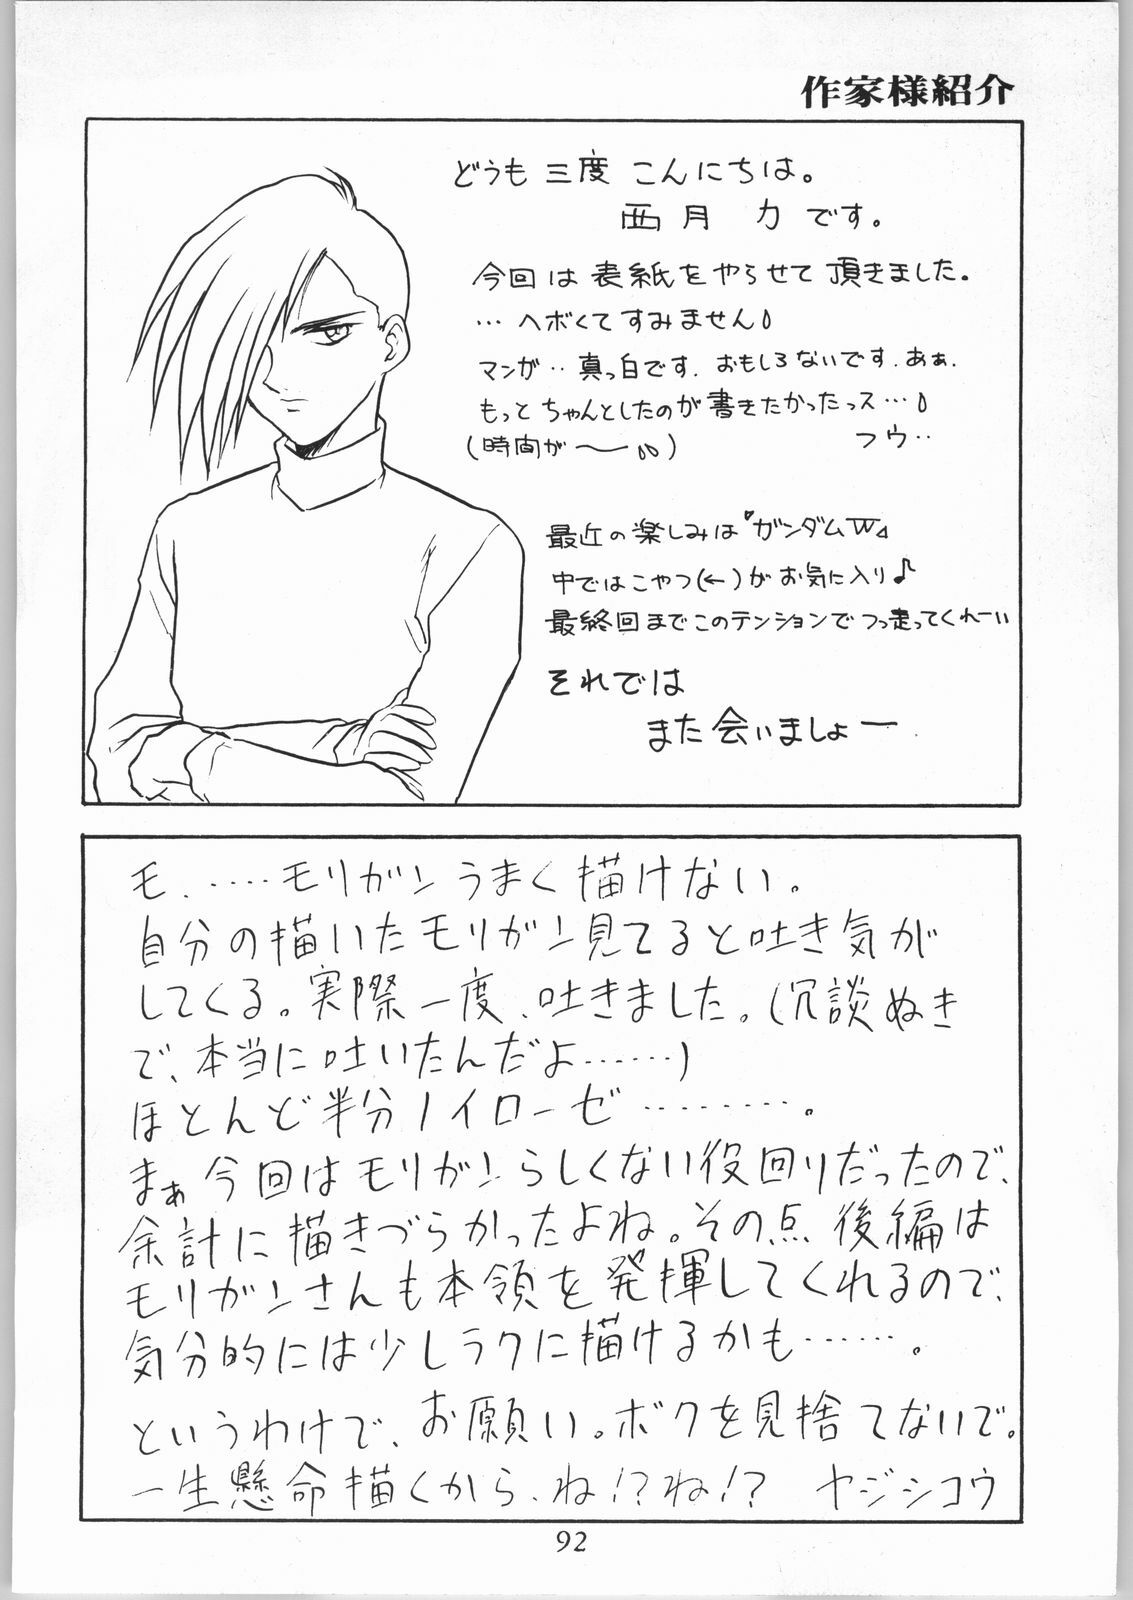 作家様紹介
どうも 三度 こんにちは。
西月 力 です。
今回は 表紙を やらせて 頂きました。
… ヘボくて すみません
マンガ‥ 真っ白です. おもしろないです. あぁ.
もっと ちゃんとしたのが 書きたかったっス…
(時間が〜) フウ‥
最近の楽しみは"ガンダムW"
中ではこやつ(←)がお気に入り♪
最終回までこのテンションで つっ走ってくれーい
それでは
また会いましょー
モ.……モリガン うまく 描けない。
自分の描いたモリガン見てると吐き気が
してくる。実際一度、吐きました。(冗談ぬき
で、本当に吐いたんだよ……)
ほとんど半分ノイローゼ………。
まぁ今回はモリガンらしくない役回りだったので、
余計に描きづらかったよね。その点 後編は
モリガンさんも本領を発揮してくれるので、
気分的には少しラクに描けるかも……。
というわけで、お願い。ボクを見捨てないで。
一生懸命描くから、ね!?ね!? ヤジシコウ
92